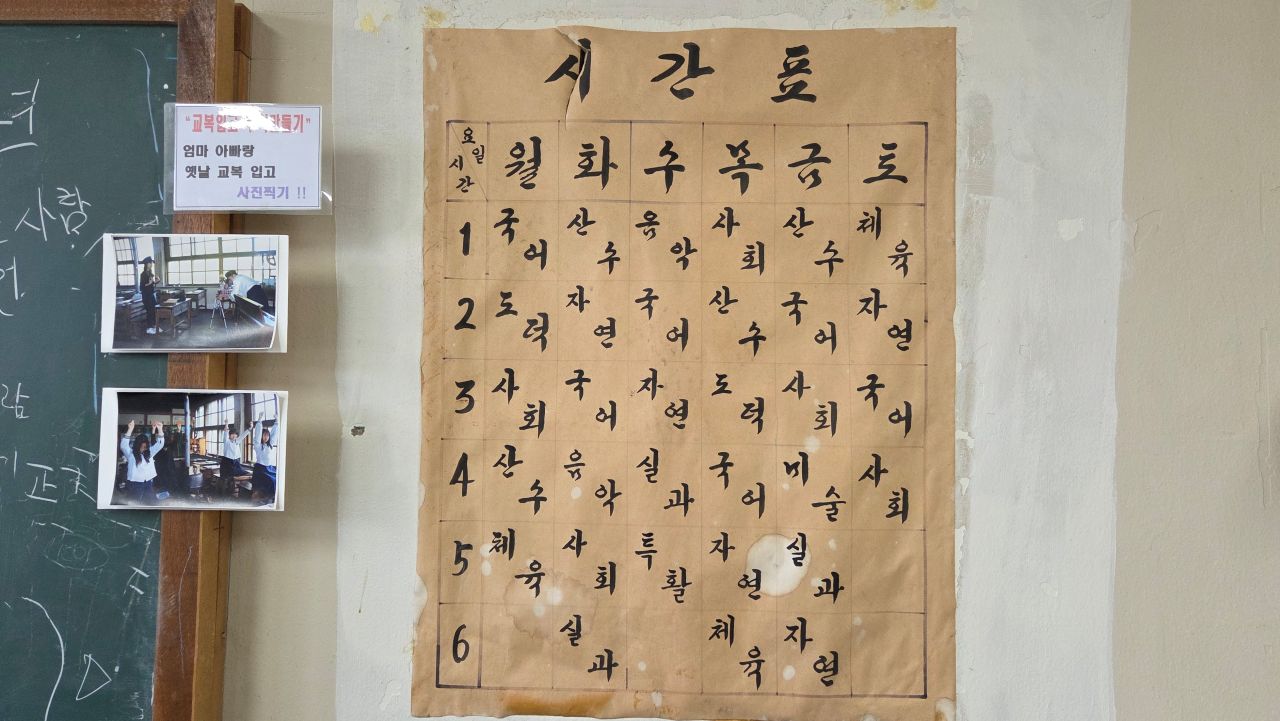 사람
"교복입고 추억만들기"
엄마 아빠랑
옛날 교복 입고
사진찍기 !!
시간표
요일 시간 월 화 수 목 금 토
1 국어 산수 음악 사회 산수 체육
2 도덕 자연 국어 산수 국어 자연
3 사회 국어 자연 도덕 사회 국어
4 산수 음악 실과 국어 미술 사회
5 체육 사회 특활 자연 실과
6 실과 체육 자연